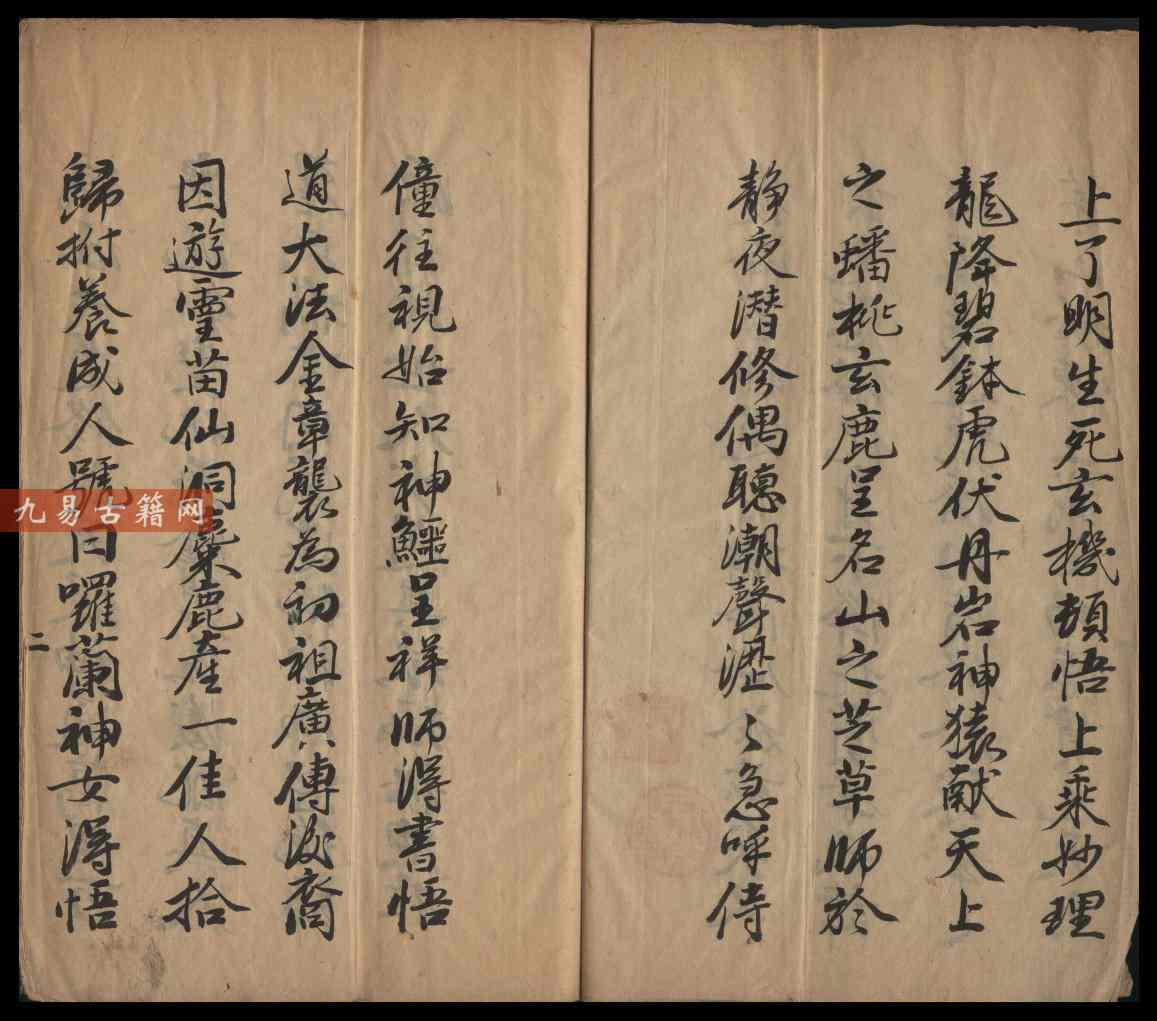 上了明生死玄機頓悟上乘妙理
龍降碧鉢虎伏丹岩神猿献天上
之蟠桃玄鹿呈名山之芝草師於
静夜潛修偶聽潮聲瀝々急呼侍
僮往視始知神鱷呈祥師淂書悟
道大法金章襲為初祖廣傳後裔
因遊霊苗仙洞麋鹿産一佳人拾
歸拊養成人號曰囉蘭神女淂悟
二
九易古籍网